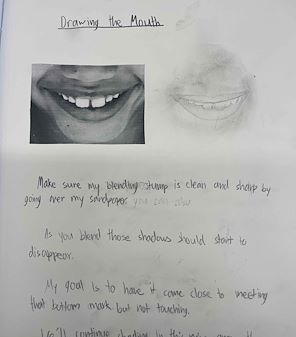 Drawing the Mouth
Make sure my blending stump is clean and sharp by
going over my sandpaper you can also
As you blend those shadows should start to
disappear.
My goal is to have it come close to meeting
that bottom mark but not touching.
We'll continue shading in this